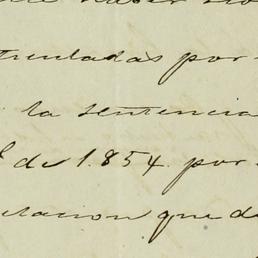 haber
truladas por
la sentencia
de 1.854. por
tacion que d